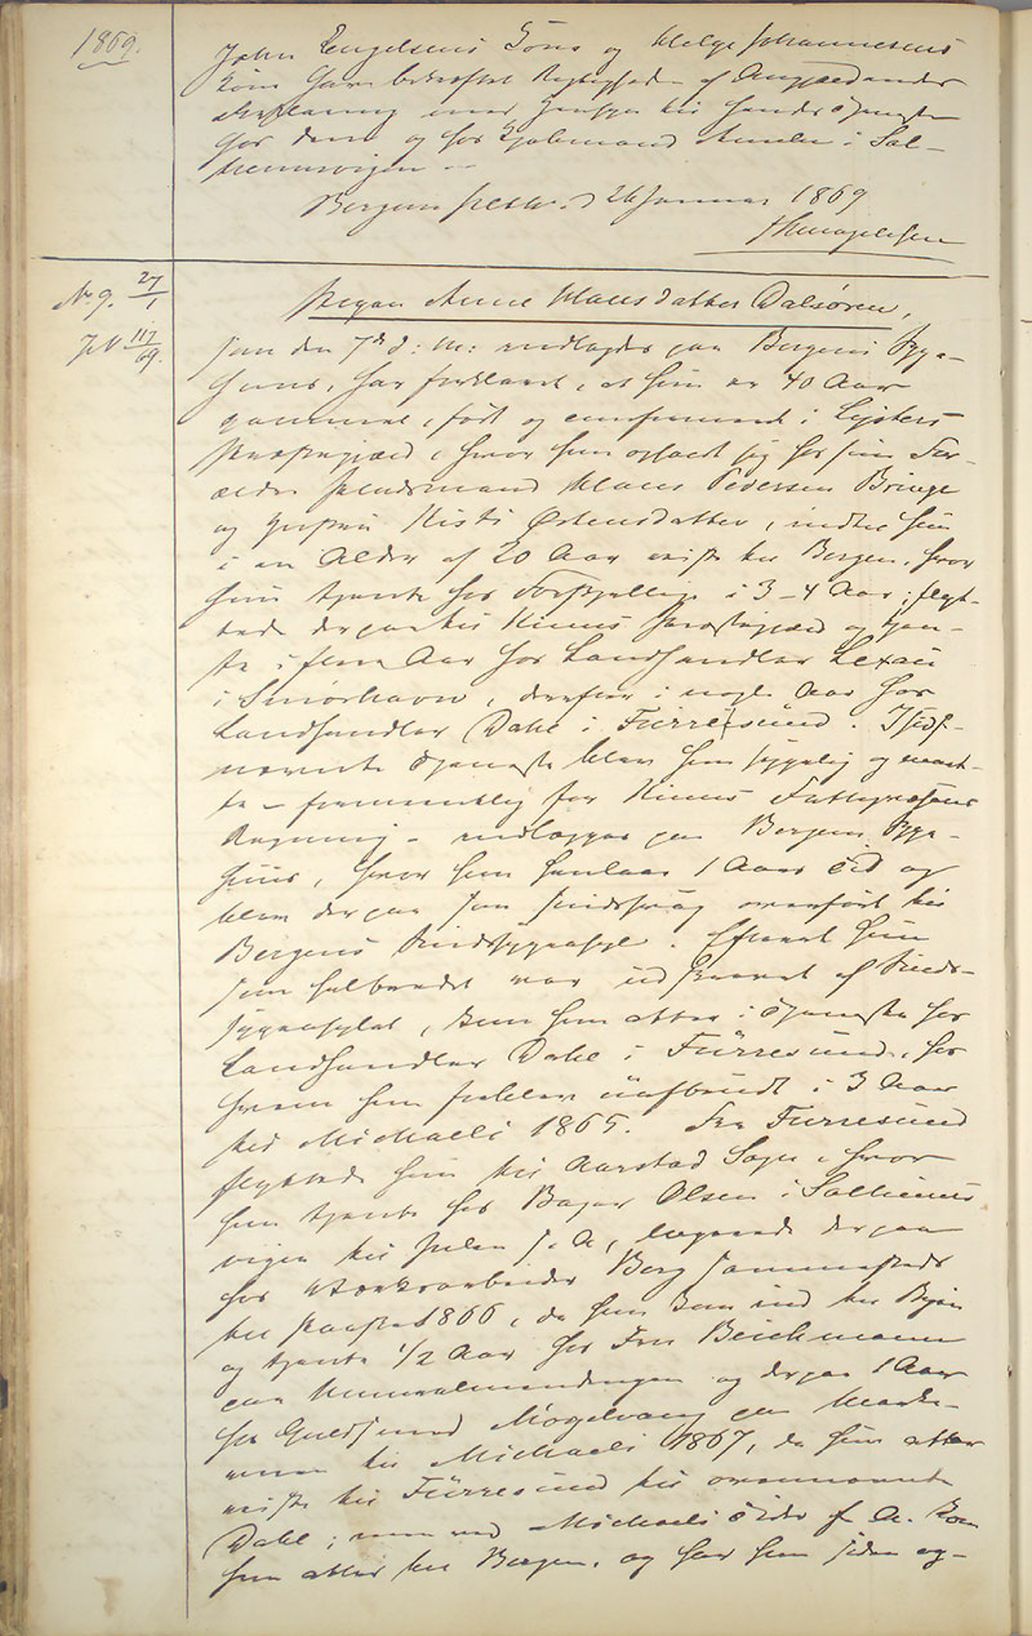 1869.
John Engelsens Kone og Helge Johannesens
Kone have bekræftet Rigtigheden af Angjældendes
Forklaring med Hensyn til hendes Tjeneste
hos dem og hos Gjæstgiver i Sol-
heimsvigen
Bergens 26 Januar 1869
No 9. 27/1
JN 117/69.
Pigen Anne Clausdatter Dalsøren,
som den 7de d: M: indlagdes paa Bergens Syge-
huus, har forklaret, at hun er 40 Aar
gammel, født og confirmeret i Lysters
Præstegjæld, hvor hun opholdt sig hos sine For-
ældre Huusmand Claus Pedersen Bringe
og Hustru Kisti Østensdatter, indtil hun
i en Alder af 20 Aar reiste til Bergen, hvor
hun tjente hos Forskjellige i 3-4 Aar; flyt-
tede derpaa til Kinns Præstegjæld og tjen-
te i flere Aar hos Landhandler Lexau
i Smørhavn, derefter i nogle Aar hos
Landhandler Dahl i Furresund. I sidst-
nævnte Tjeneste blev hun sygelig og maat-
te - formentlig for Kinns Fattigvæsens
Regning - indlægges paa Bergens Syge-
huus, hvor hun henlaae 1 Aars Tid og
blev derpaa som sindssvag overført til
Bergens Sindssygeasyl. Efterat hun
som helbredet var udskrevet af Sinds-
sygeasylet, kom hun atter i Tjeneste hos
Landhandler Dahl i Furresund, hos
hvem hun forblev uafbrudt i 3 Aar
til Michaeli 1865. Fra Furresund
flyttede hun til Aarstad Sogn, hvor
hun tjente hos Bager Olsen i Solheims
vigen til Julen s. A, logerede derpaa
hos Værksarbeider Berg sammesteds
til Paaske 1866, da hun kom ind til Byen
og tjente 1/2 Aar hos Fru Beichmann
paa Muuralmendingen og derpaa 1 Aar
hos Guldsmed Møgelvang paa Marke-
veien til Michaeli 1867, da hun atter
reiste til Furresund til ovennævnte
Dahl; men ved Michaeli Tider f. A. kom
hun atter til Bergen, og har hun siden og-